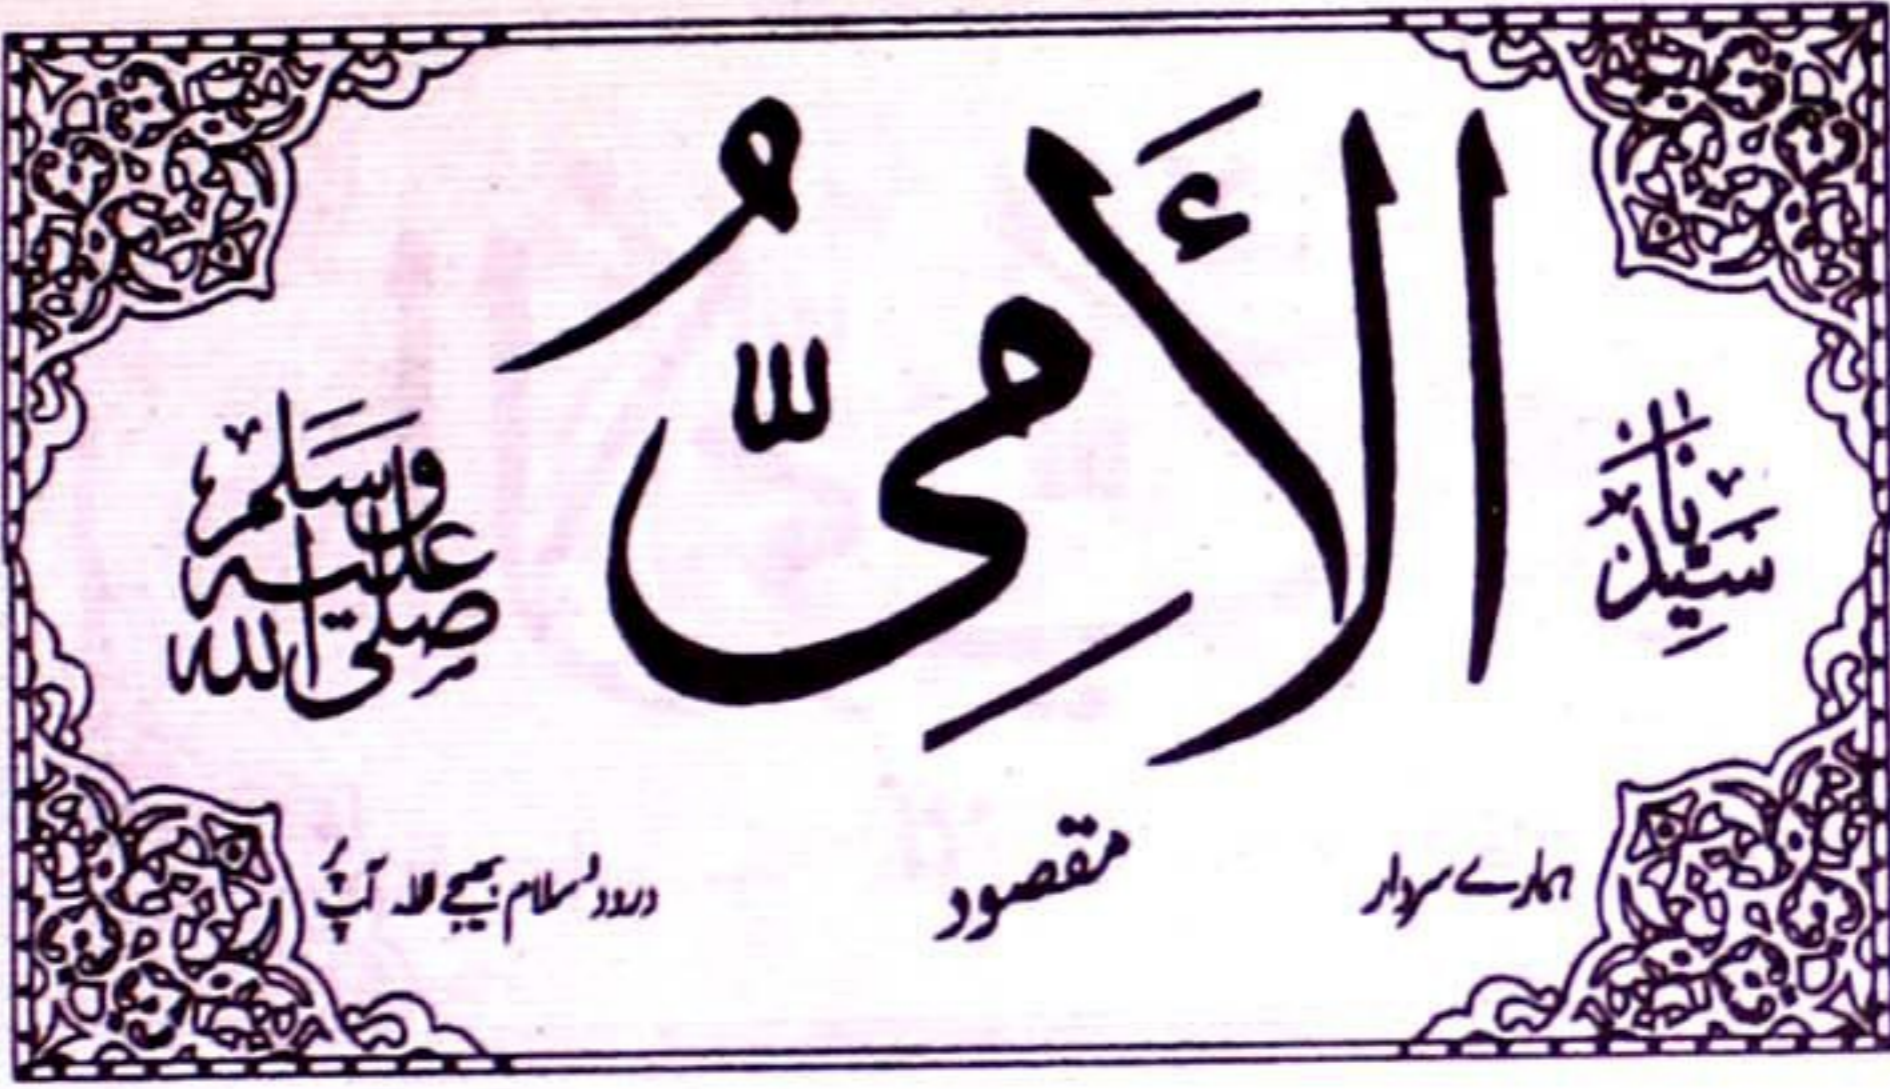 سَيِّدُنَا الأَمِىُّ صَلَّى اللہ عليه وَسَلَّم
ہمارے سردار مقصود درود و سلام بھیجے اللہ آپ پر